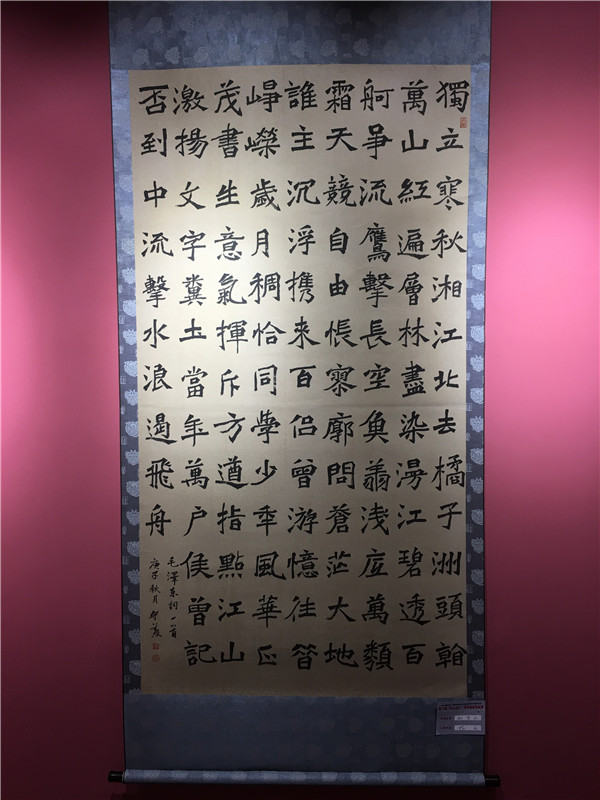 獨立寒秋湘江北去橘子洲頭看
萬山紅遍層林盡染漫江碧透百
舸爭流鷹擊長空魚翔淺底萬類
霜天競自由悵寥廓問蒼茫大地
誰主沉浮携來百侣曾游憶往昔
崢嶸歲月稠恰同學少年風華正
茂書生意氣揮斥方遒指點江山
激揚文字糞土當年萬户侯曾記
否到中流擊水浪遏飛舟
毛澤東詞一首
庚子秋月